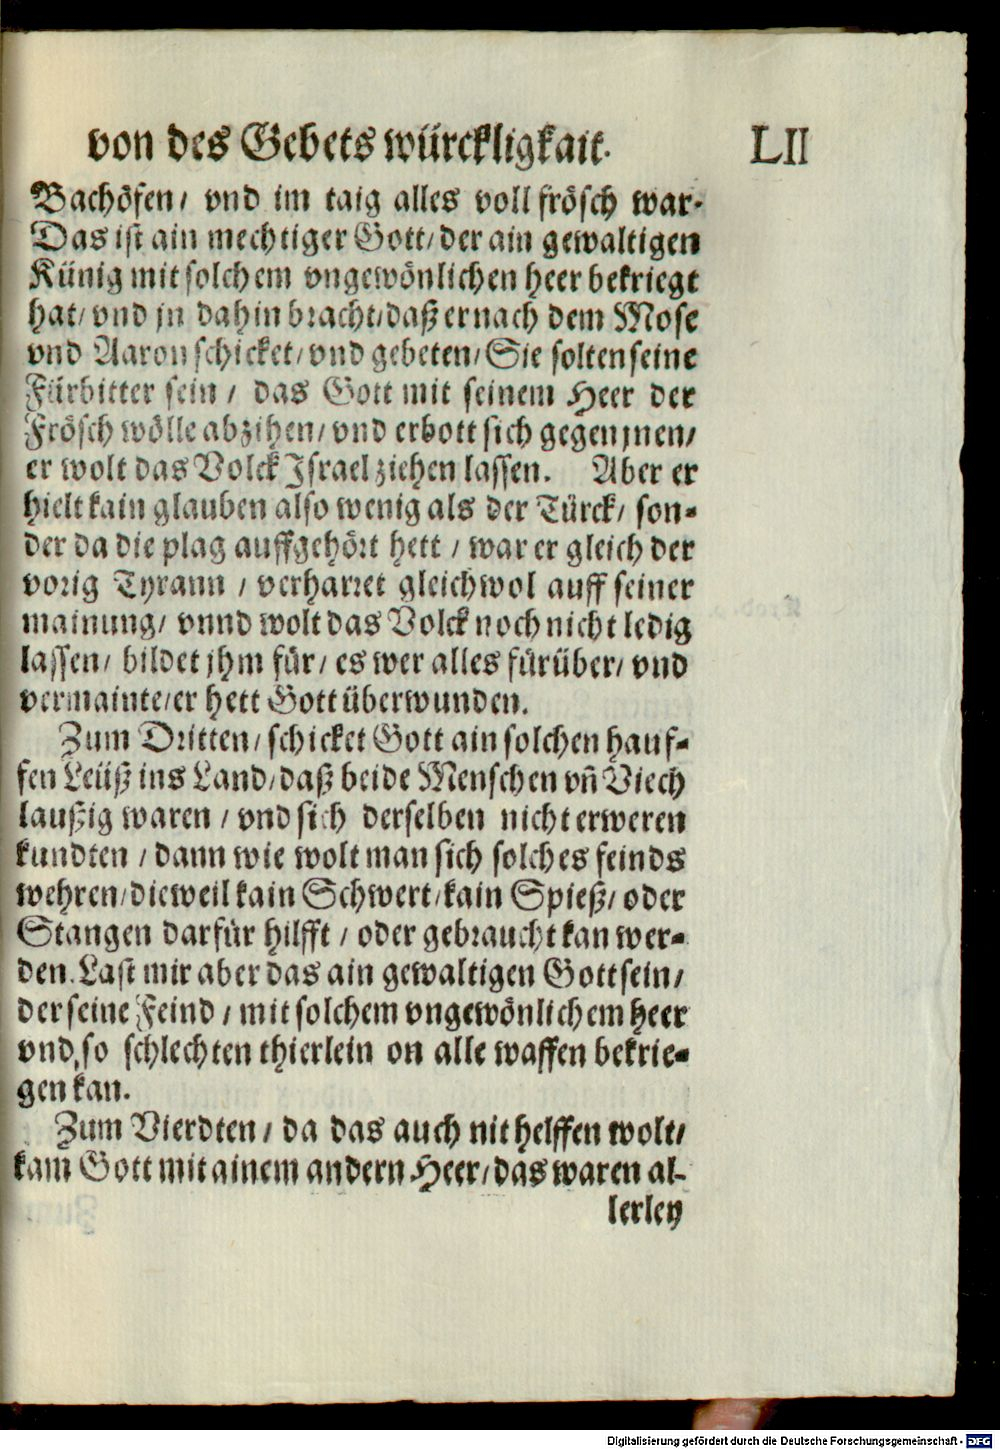 von des Gebets würckligkait. LII
Bachöfen / vnd im taig alles voll frösch war.
Das ist ain mechtiger Gott / der ain gewaltigen
Künig mit solchem vngewönlichen heer bekriegt
hat / vnd jn dahin bracht / daß er nach dem Mose
vnd Aaron schicket / vnd gebeten / Sie solten seine
Fürbitter sein / das Gott mit seinem Heer der
Frösch wölle abzihen / vnd erbott sich gegen jnen /
er wolt das Volck Israel ziehen lassen. Aber er
hielt kain glauben also wenig als der Türck / son-
der da die plag auffgehört hett / war er gleich der
vorig Tyrann / verharret gleichwol auff seiner
mainung / vnnd wolt das Volck noch nicht ledig
lassen / bildet jhm für / es wer alles fürüber / vnd
vermainte / er hett Gott überwunden.
Zum Dritten / schicket Gott ain solchen hauf-
fen Leüß ins Land / daß beide Menschen vñ Viech
laußig waren / vnd sich derselben nicht erweren
kundten / dann wie wolt man sich solches feinds
wehren / dieweil kain Schwert / kain Spieß / oder
Stangen darfür hilfft / oder gebraucht kan wer-
den. Last mir aber das ain gewaltigen Gott sein /
der seine Feind / mit solchem vngewönlichem heer
vnd so schlechten thierlein on alle waffen bekrie-
gen kan.
Zum Vierdten / da das auch nit helffen wolt /
kam Gott mit ainem andern Heer / das waren al-
lerley
Digitalisierung gefördert durch die Deutsche Forschungsgemeinschaft - DFG